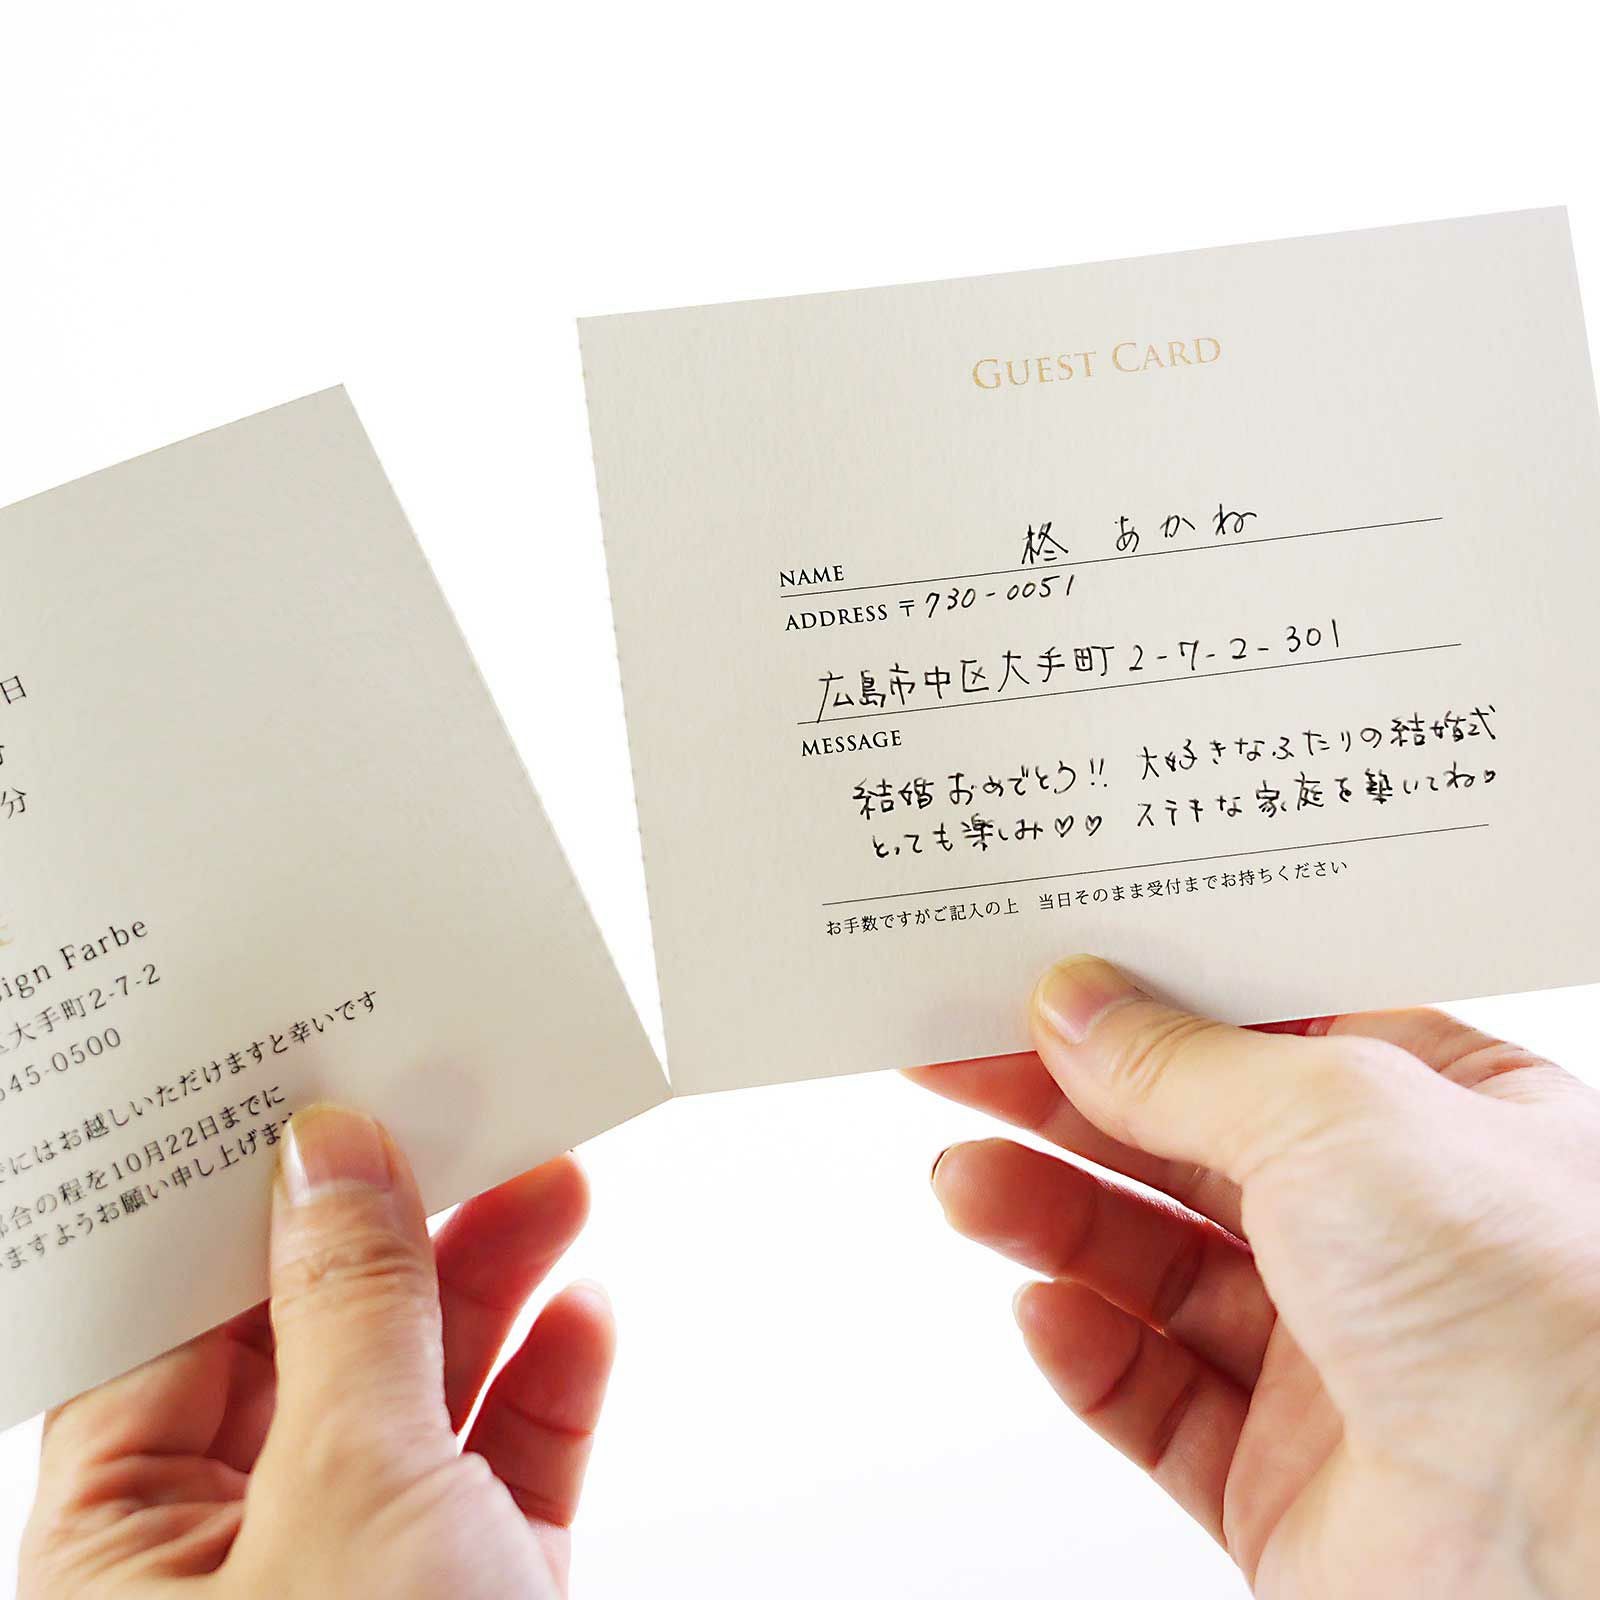 日
分
sign Farbe
大手町2-7-2
545-0500
にはお越しいただけますと幸いです
都合の程を10月22日までに
ますようお願い申し上げます
GUEST CARD
NAME 柊 あかね
ADDRESS 〒730-0051
広島市中区大手町2-7-2-301
MESSAGE
結婚おめでとう!! 大好きなふたりの結婚式
とっても楽しみ♡♡ ステキな家庭を築いてね♡
お手数ですがご記入の上 当日そのまま受付までお持ちください